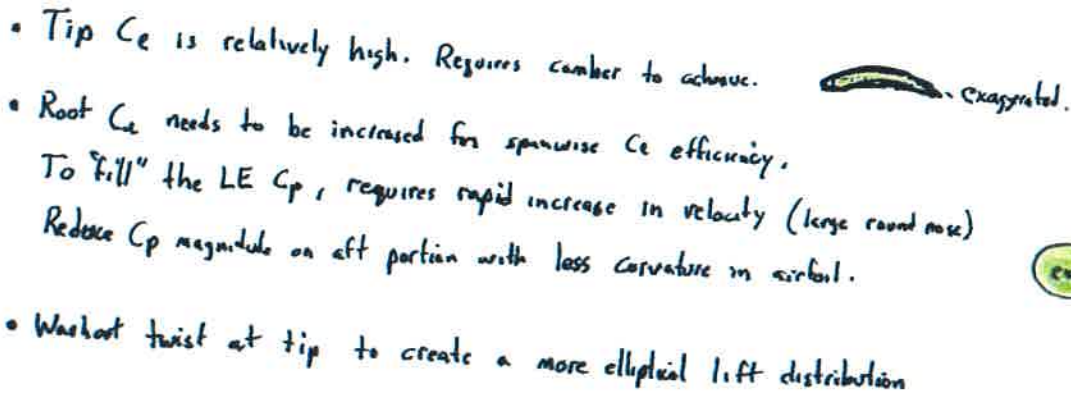 • Tip Cℓ is relatively high. Requires camber to achieve.
- exaggerated.
• Root Cℓ needs to be increased for spanwise Cℓ efficiency.
To "fill" the LE Cp, requires rapid increase in velocity (large round nose)
Reduce Cp magnitude on aft portion with less curvature in airfoil.
• Washout twist at tip to create a more elliptical lift distribution